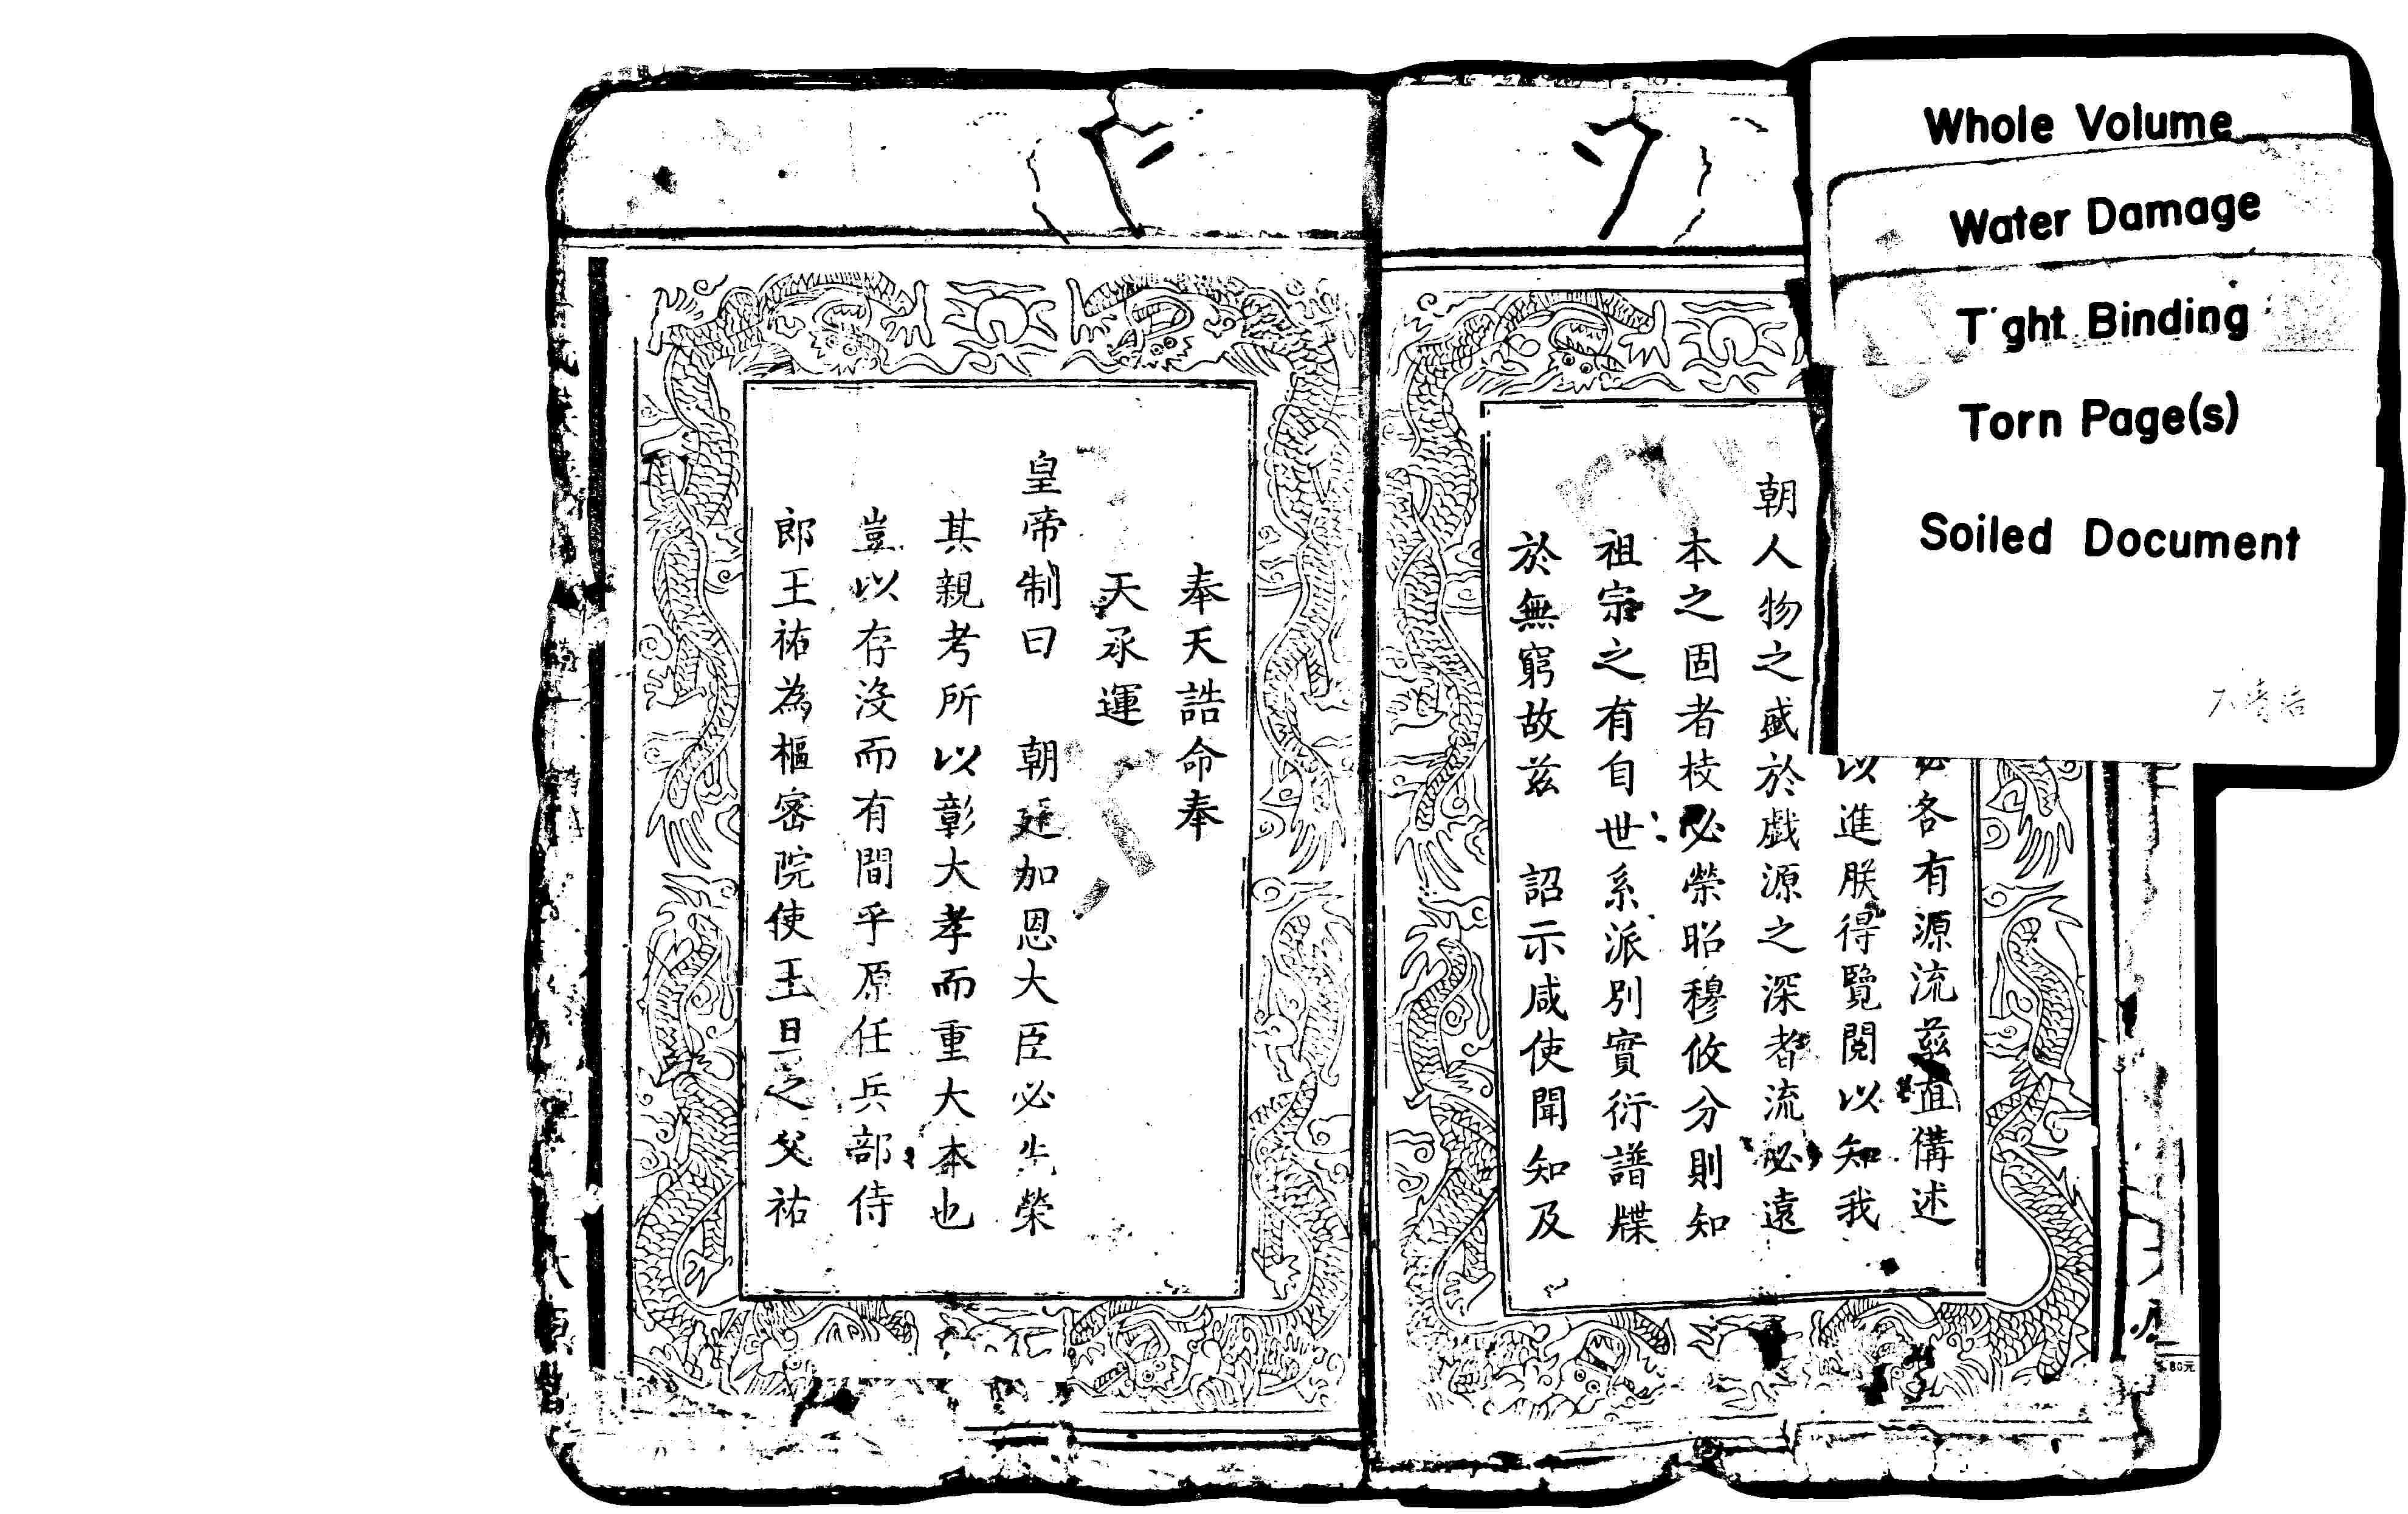 Whole Volume
Water Damage
T ght Binding
Torn Page(s)
Soiled Document
各有源流茲直備述
以進朕得覽閱以知我
朝人物之盛於戲源之深者流必遠
本之固者枝必榮昭穆攸分則知
祖宗之有自世系派別實衍譜牒
於無窮故茲 詔示咸使聞知及
奉天誥命奉
天承運
皇帝制曰 朝廷加恩大臣必先榮
其親考所以彰大孝而重大本也
豈以存沒而有間乎原任兵部侍
郎王祐為樞密院使王旦之父祐
80元